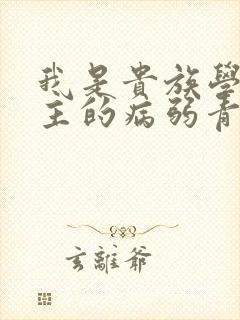 我是貴族學
主的病弱青
玄離爺